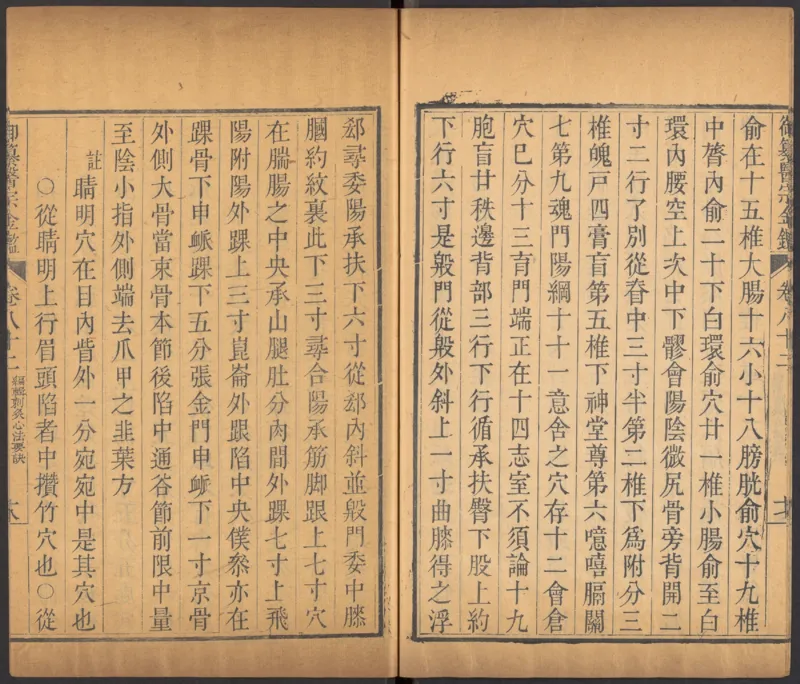 俞在十五椎大腸十六小十八膀胱俞穴十九椎
中膂內俞二十下白環俞穴廿一椎小腸俞至白
環內腰空上次中下髎會陽陰微尻骨旁背開二
寸二行了別從脊中三寸半第二椎下為附分三
椎魄戶四膏肓第五椎下神堂尊第六噫嘻膈關
七第九魂門陽綱十十一意舍之穴存十二會倉
穴巳分十三肓門端正在十四志室不須論十九
胞肓廿秩邊背部三行下行循承扶臀下股上約
下行六寸是殷門從殷外斜上一寸曲膝得之浮
郄尋委陽承扶下六寸從郄內斜並殷門委中膝
膕約紋裏此下三寸尋合陽承筋脚跟上七寸穴
在腨腸之中央承山腿肚分肉間外踝七寸上飛
陽附陽外踝上三寸崑崙外跟陷中央僕叅亦在
踝骨下申䘑踝下五分張金門申䘑下一寸京骨
外側大骨當束骨本節後陷中通谷節前限中量
至陰小指外側端去爪甲之韭葉方
註 睛明穴在目內眥外一分宛宛中是其穴也
○從睛明上行眉頭陷者中攢竹穴也○從
御纂醫宗金鑑
卷八十二
編輯刺灸心法要訣